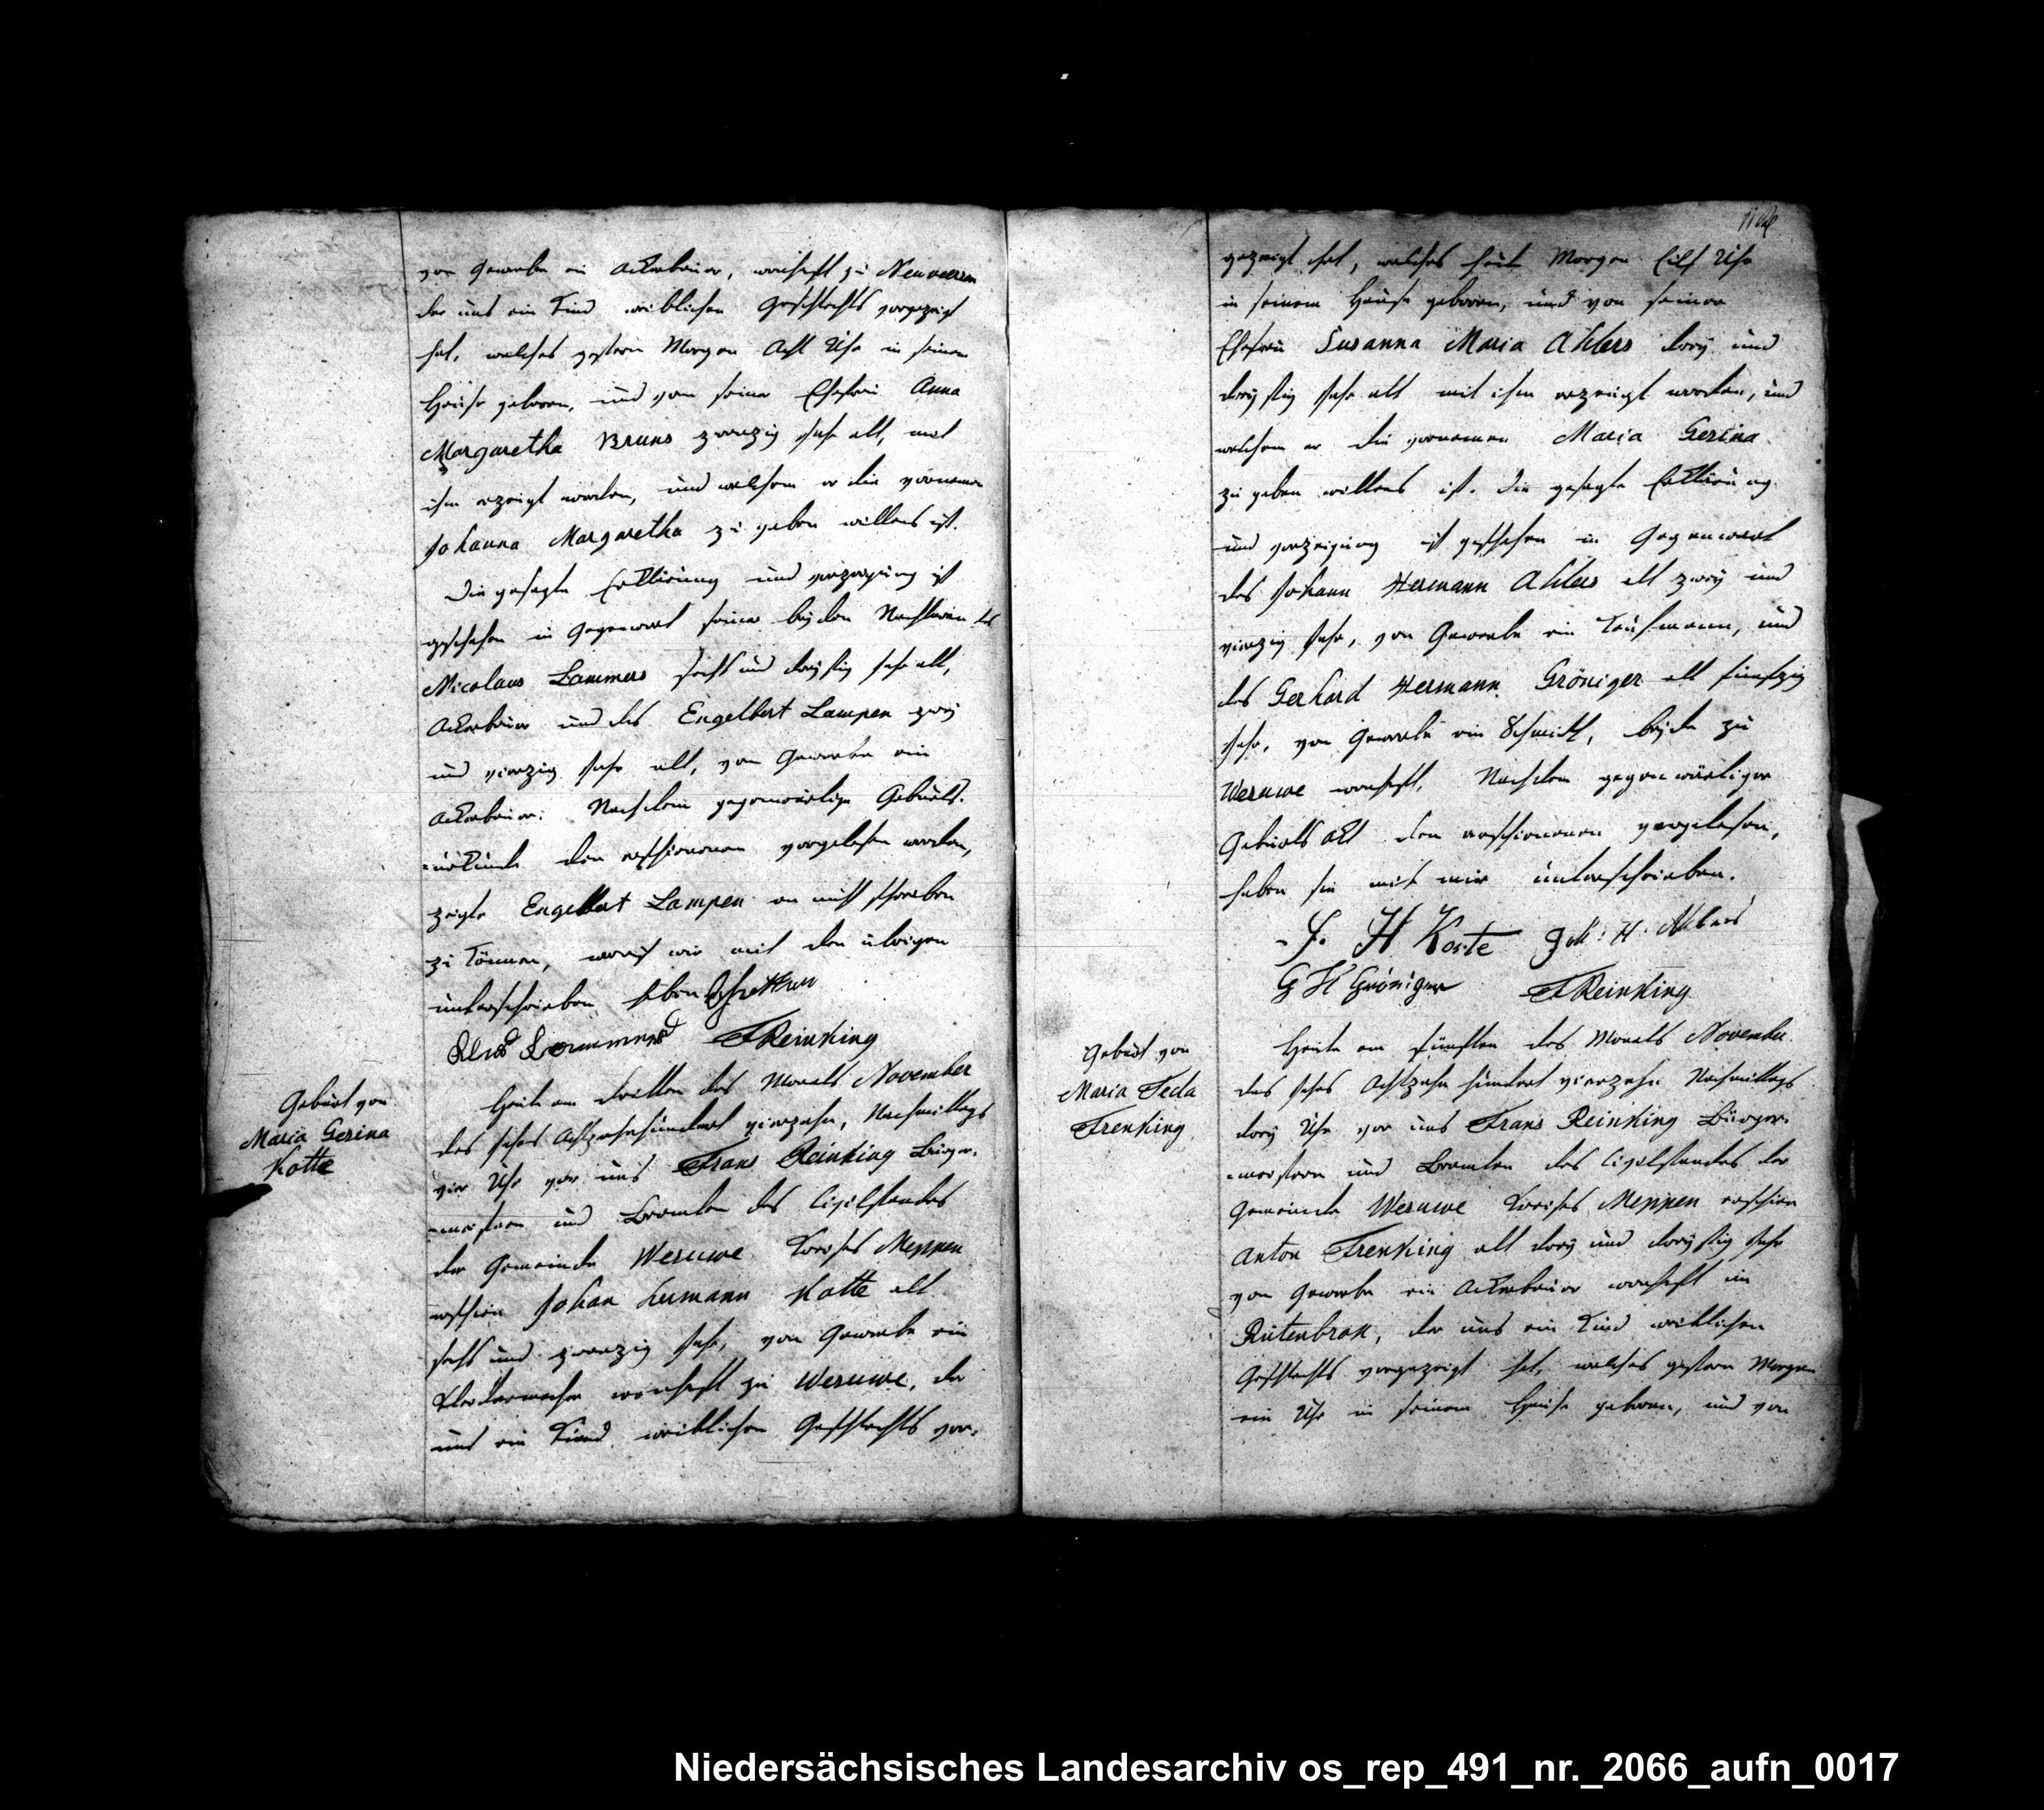 von Gewerbe ein Ackerbauer, wonhaft zu Neuveeren
der uns ein Kind weiblichen Geschlechts vorgezeigt
hat, welches gestern Morgen Acht Uhr in seinem
Hause geboren, und von seiner Ehefrau Anna
Margaretha Bruns zwanzig Jahr alt, mit
ihm erzeigt worden, und welchem er die vornamen
Johanna Margaretha zu geben willens ist.
Die gesagte Erklärung und vorzeigung ist
geschehen in Gegenwart seiner beyden Nachbaren des
Nicolaus Lammers sechs und dreyßig Jahr alt,
Ackerbauer und des Engelbert Lampen zwey
und vierzig Jahr alt, von Gewerbe ein
Ackerbauer. Nachdem gegenwärtige Geburts-
-urkunde den erschienenen vorgelesen worden,
zeigte Engelbert Lampen an nicht schreiben
zu können, worauf wir mit den übrigen
unterschrieben haben
Lammers FReinking
Geburt von
Maria Gesina
Kotte
Heute am dritten des Monats November
des Jahrs Achtzehnhundert vierzehn, Nachmittags
vier Uhr vor uns Frans Reinking Bürger-
-meistern und Beamten des Civilstandes
der Gemeinde Wesuwe Kreises Meppen
erschien Johan Hermann Kotte alt
sechs und zwanzig Jahr, von Gewerbe ein
Kleidermacher wonhaft zu Wesuwe, der
uns ein Kind weiblichen Geschlechts vor-
gezeigt hat, welches heute Morgen Eilf Uhr
in seinem Hause geboren, und von seiner
Ehefrau Susanna Maria Ahlers drey und
dreyßig Jahr alt mit ihm erzeugt worden, und
welchem er die vornamen Maria Gesina
zu geben willens ist. Die gesagte Erklärung
und vorzeigung ist geschehen in Gegenwart
des Johann Hermann Ahlers alt zwey und
vierzig Jahr, von Gewerbe ein Kaufmann, und
des Gerhard Hermann Gröniger alt fünfzig
Jahr, von Gewerbe ein Schmidt, beyde zu
Wesuwe wonhaft, Nachdem gegenwärtiger
Geburts Akt den erschienenen vorgelesen,
haben sie mit mir unterschrieben.
J. H Kotte Joh: H: Ahlers
G H Gröniger FReinking
Geburt von
Maria Teda
Frenking
Heute am fünften des Monats November
des Jahrs Achtzehn hundert vierzehn Nachmittags
drey Uhr vor uns Frans Reinking Bürger-
-meistern und Beamten des Civilstandes der
Gemeinde Wesuwe Kreises Meppen erschien
Anton Frenking alt drey und dreyßig Jahr
von Gewerbe ein Ackerbauer wonhaft im
Rütenbrok, der uns ein Kind weiblichen
Geschlechts vorgezeigt hat, welches gestern Morgen
ein Uhr in seinem Hause geboren, und von
Niedersächsisches Landesarchiv os_rep_491_nr._2066_aufn_0017